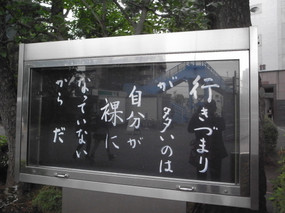 行きづまり
が多いのは
自分が
裸に
なっていない
からだ